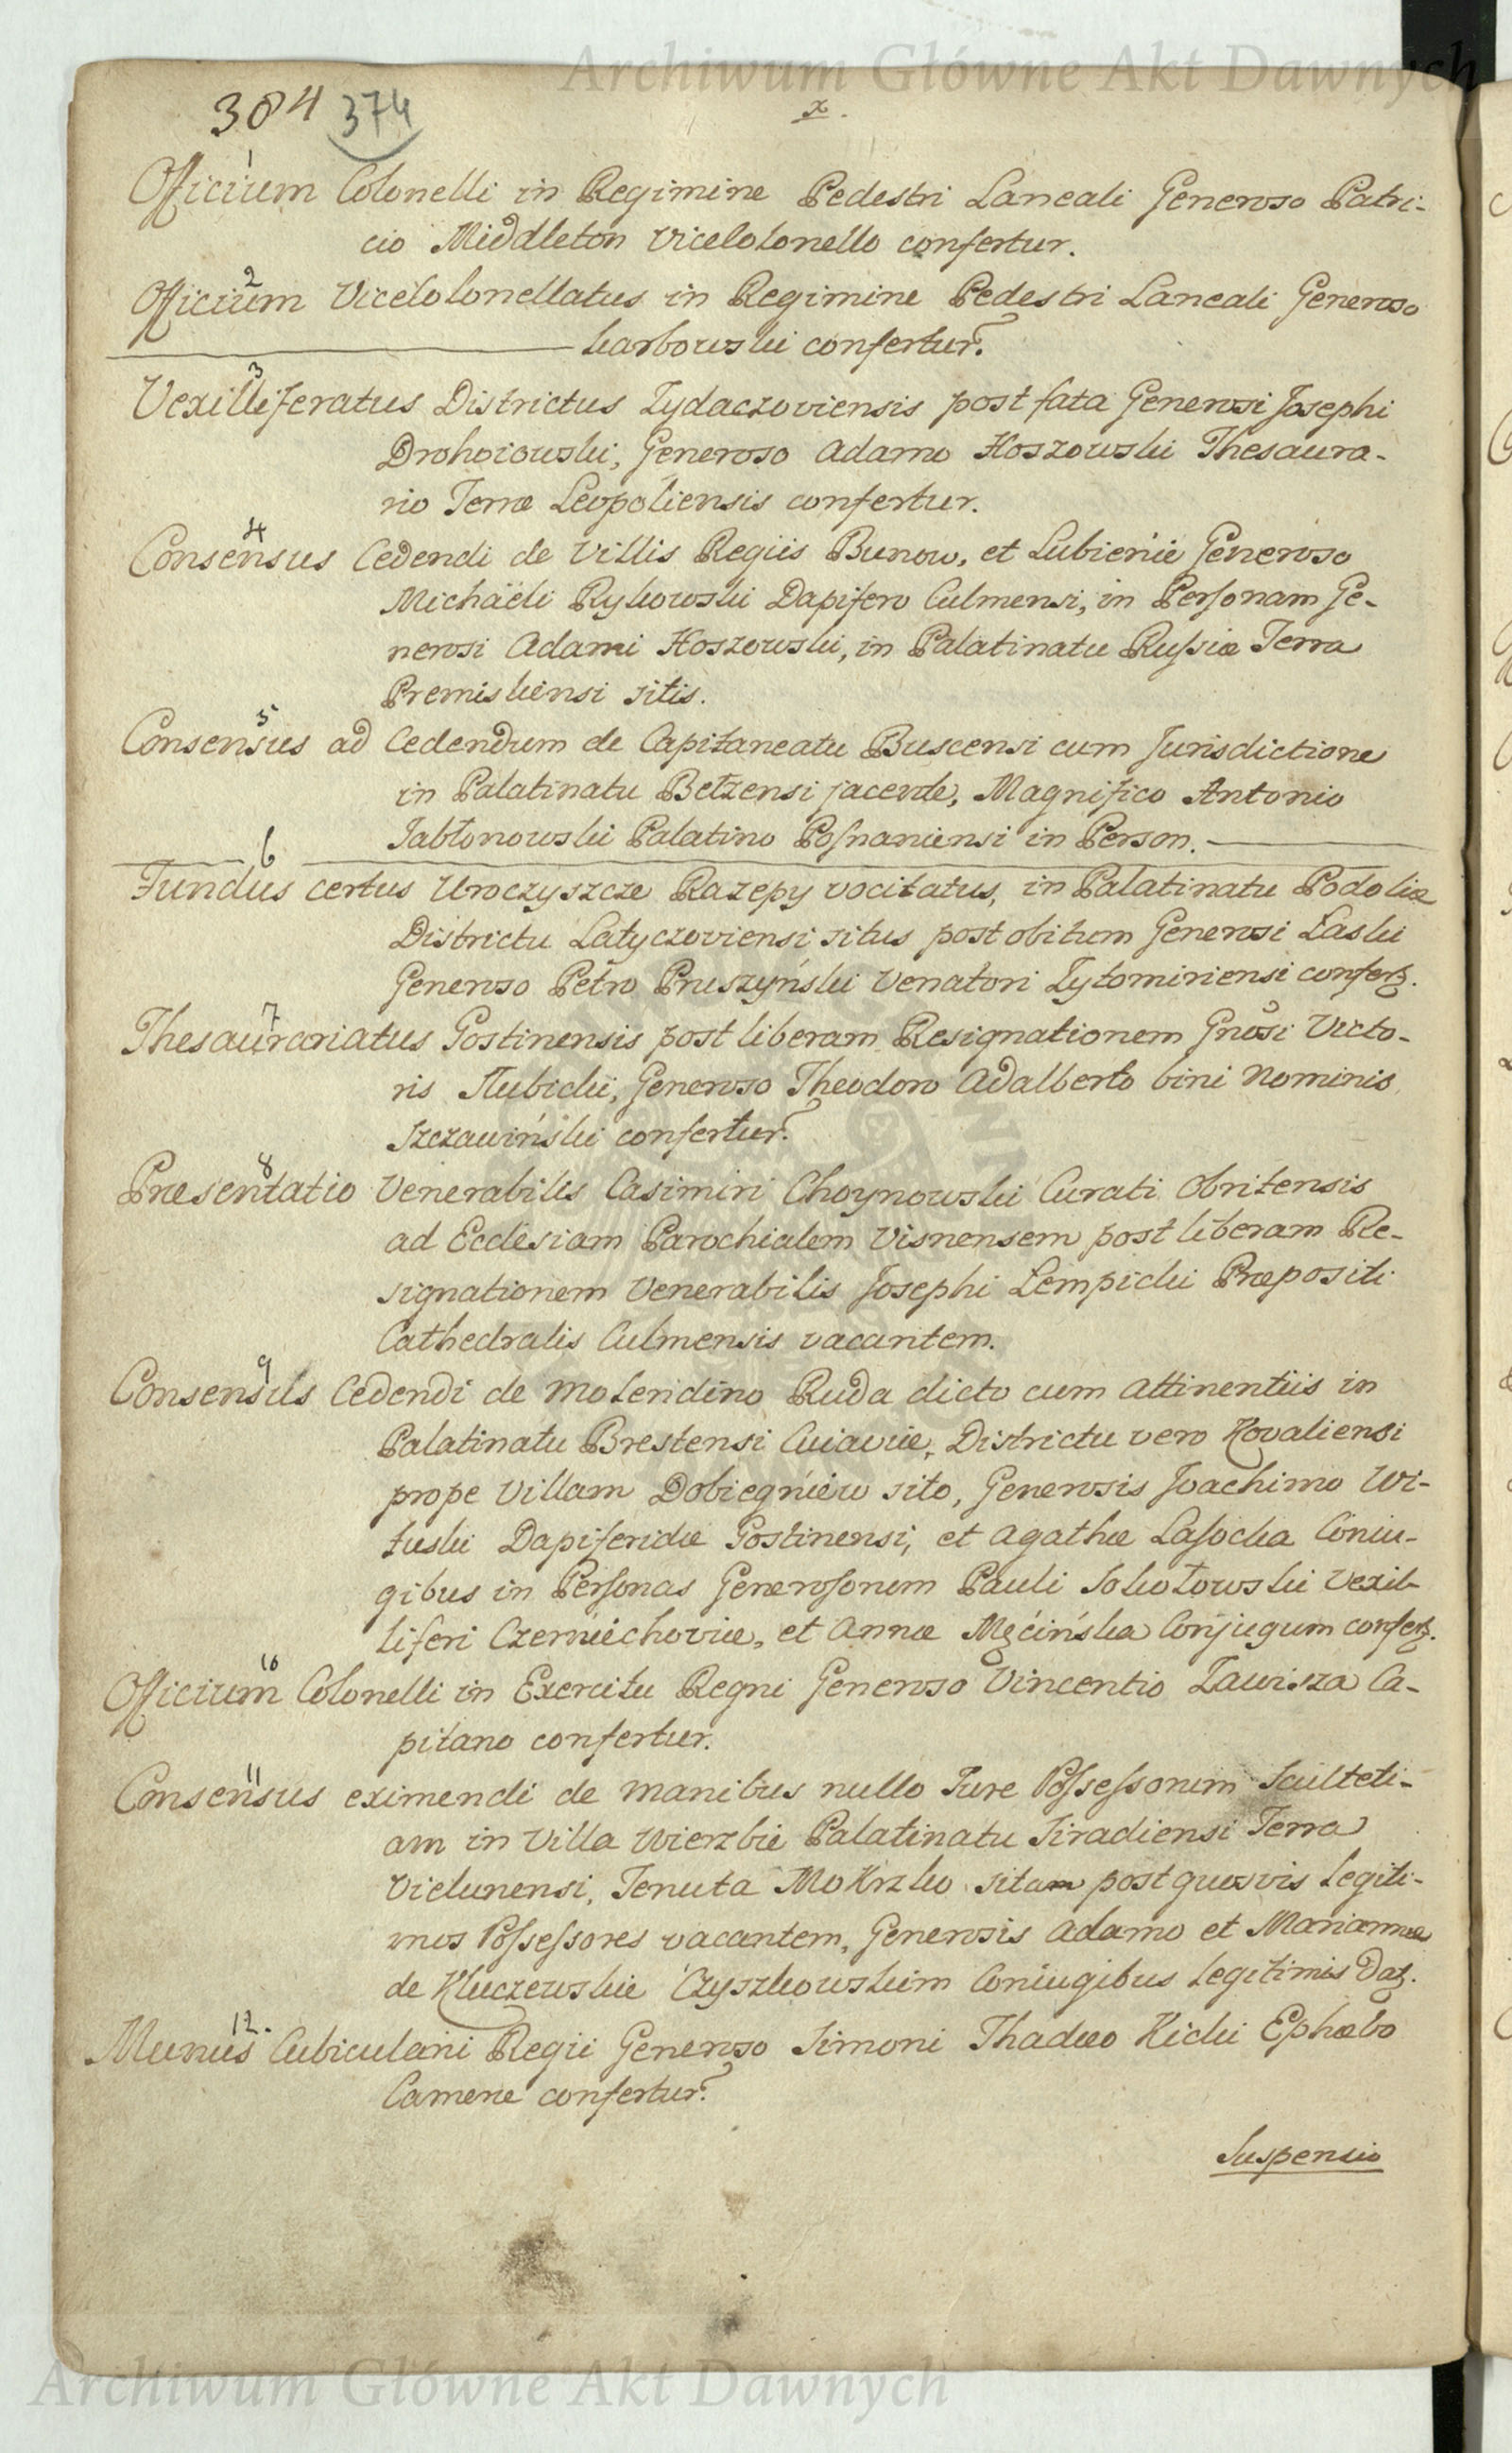 Archiwum Główne Akt Dawnych
384 374 x.
1
Officium Colonelli in Regimine Pedestri Laneali Generoso Patri-
cio Middleton ViceColonello confertur.
2
Officium ViceColonellatus in Regimine Pedestri Laneali Generoso
Karbowski confertur.
3
Vexilliferatus Districtus Zydaczoviensis post fata Generosi Josephi
Drohoiowski, Generoso Adamo Hoszowski Thesaura-
rio Terræ Leopoliensis confertur.
4
Consensus Cedendi de Villis Regiis Bunow, et Lubienie Generoso
Michaëli Rykowski Dapifero Culmensi, in Personam Ge-
nerosi Adami Hoszowski, in Palatinatu Russiæ Terra
Premisliensi sitis.
5
Consensus ad Cedendum de Capitaneatu Buscensi cum Jurisdictione
in Palatinatu Betzensi jacente, Magnifico Antonio
Jabłonowski Palatino Posnaniensi in Person.
6
Fundus certus Uroczyszcze Razepy vocitatus, in Palatinatu Podoliæ
Districtu Latyczoviensi situs post obitum Generosi Laski
Generoso Petro Pruszyński Venatori Zytomiriensi conferȝ.
7
Thesaurariatus Gostinensis post liberam Resignationem Gnosi Victo-
ris Słubicki, Generoso Theodoro Adalberto bini Nominis
Szczawiński confertur.
8
Præsentatio Venerabilis Casimiri Choynowski Curati Obritensis
ad Ecclesiam Parochialem Visnensem post liberam Re-
signationem Venerabilis Josephi Lempicki Præpositi
Cathedralis Culmensis vacantem.
9
Consensus Cedendi de Molendino Ruda dicto cum attinentiis in
Palatinatu Brestensi Cuiaviæ, Districtu vero Kovaliensi
prope Villam Dobiegniew sito, Generosis Joachimo Wi-
tuski Dapiferidæ Gostinensi, et Agathæ Lasocka Coniu-
gibus in Personas Generosorum Pauli Sokołowski Vexil-
liferi Czerniechoviæ, et Annæ Męcińska Conjugum conferȝ.
10
Officium Colonelli in Exercitu Regni Generoso Vincentio Zawisza Ca-
pitano confertur.
11
Consensus eximendi de manibus nullo Jure Possessorum Sculteti-
am in Villa Wierzbie Palatinatu Siradiensi Terra
Vielunensi, Tenuta Mokrzko sitam post quosvis legiti-
mos Possessores vacantem, Generosis Adamo et Mariannæ
de Kluczewskie Czyszkowskim Coniugibus legitimis Daȝ.
12.
Munus Cubicularii Regii Generoso Simoni Thadæo Kicki Ephæbo
Cameræ confertur.
Suspensio
Archiwum Główne Akt Dawnych